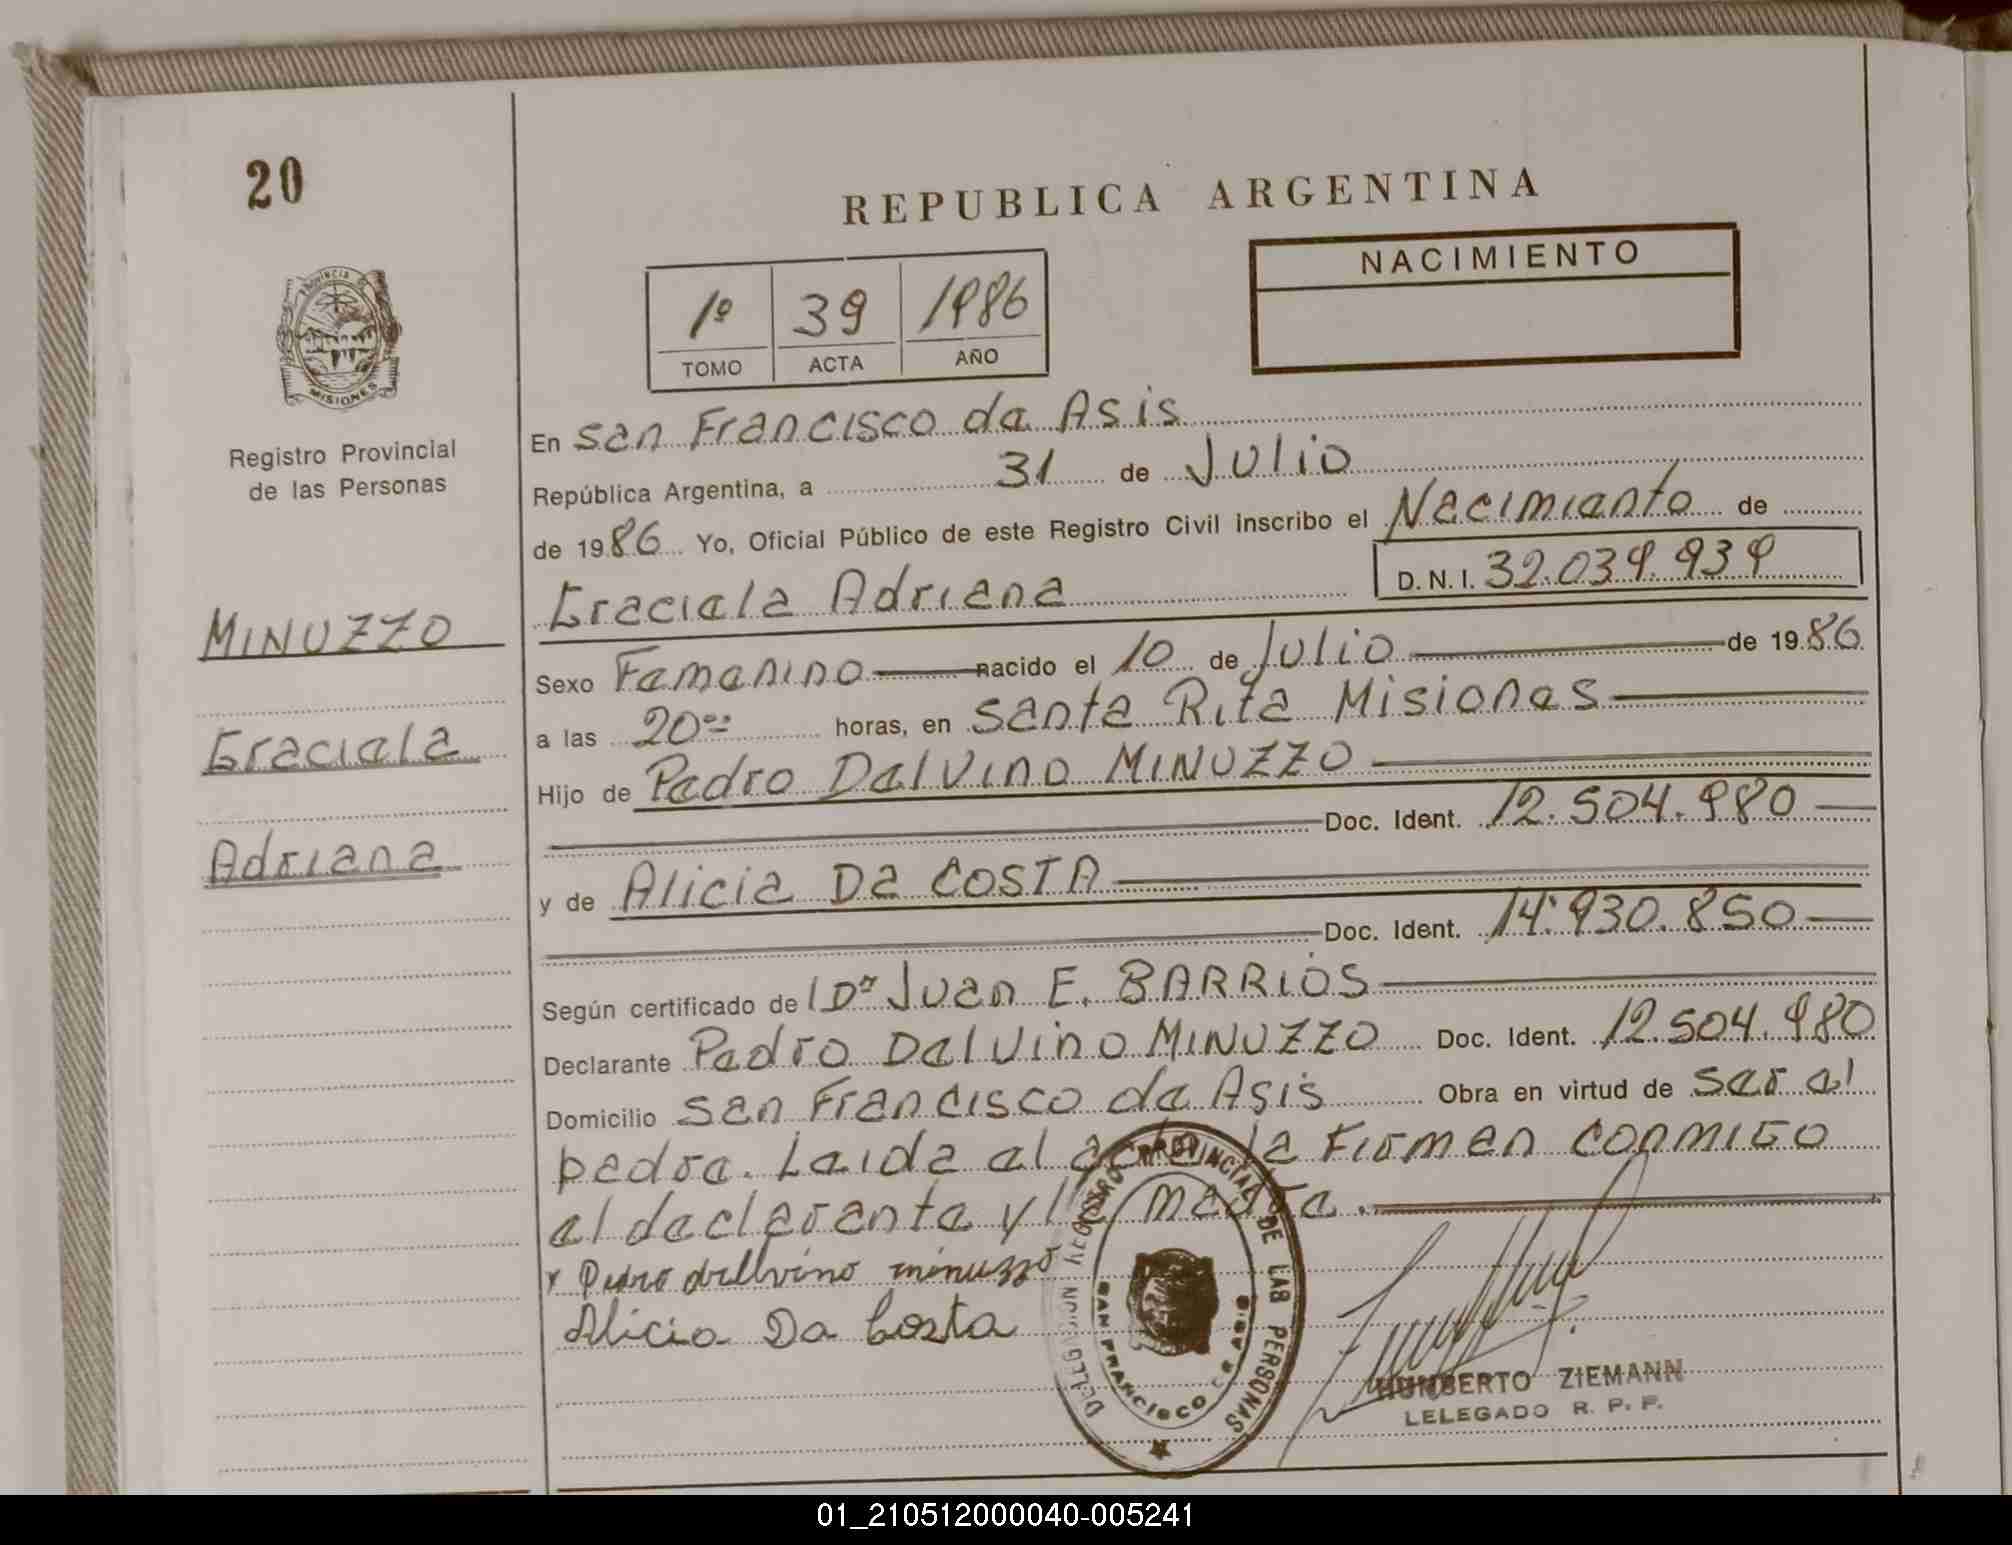 20
REPUBLICA ARGENTINA
NACIMIENTO
1º 39 1986
TOMO ACTA AÑO
PROVINCIA DE MISIONES
Registro Provincial
de las Personas
MINUZZO
Graciela
Adriana
En San Francisco de Asis
República Argentina, a 31 de Julio
de 1986 Yo, Oficial Público de este Registro Civil inscribo el Nacimiento de
Graciela Adriana D.N.I. 32.039.939
Sexo Femenino nacido el 10 de Julio de 1986
a las 20 horas, en Santa Rita Misiones
Hijo de Pedro Dalvino MINUZZO
Doc. Ident. 12.504.980
y de Alicia Da COSTA
Doc. Ident. 14.930.850
Según certificado de Dr Juan E. BARRIOS
Declarante Pedro Dalvino MINUZZO Doc. Ident. 12.504.980
Domicilio San Francisco de Asis Obra en virtud de ser el
padre. Leida el acta la Firman conmigo
el declarante y la madre.
x Pedro dallvino minuzzo
Alicia Da Costa
DELEGACION REGISTRO PROVINCIAL DE LAS PERSONAS
SAN FRANCISCO DE ASIS
HUMBERTO ZIEMANN
LELEGADO R. P. P.
01_210512000040-005241